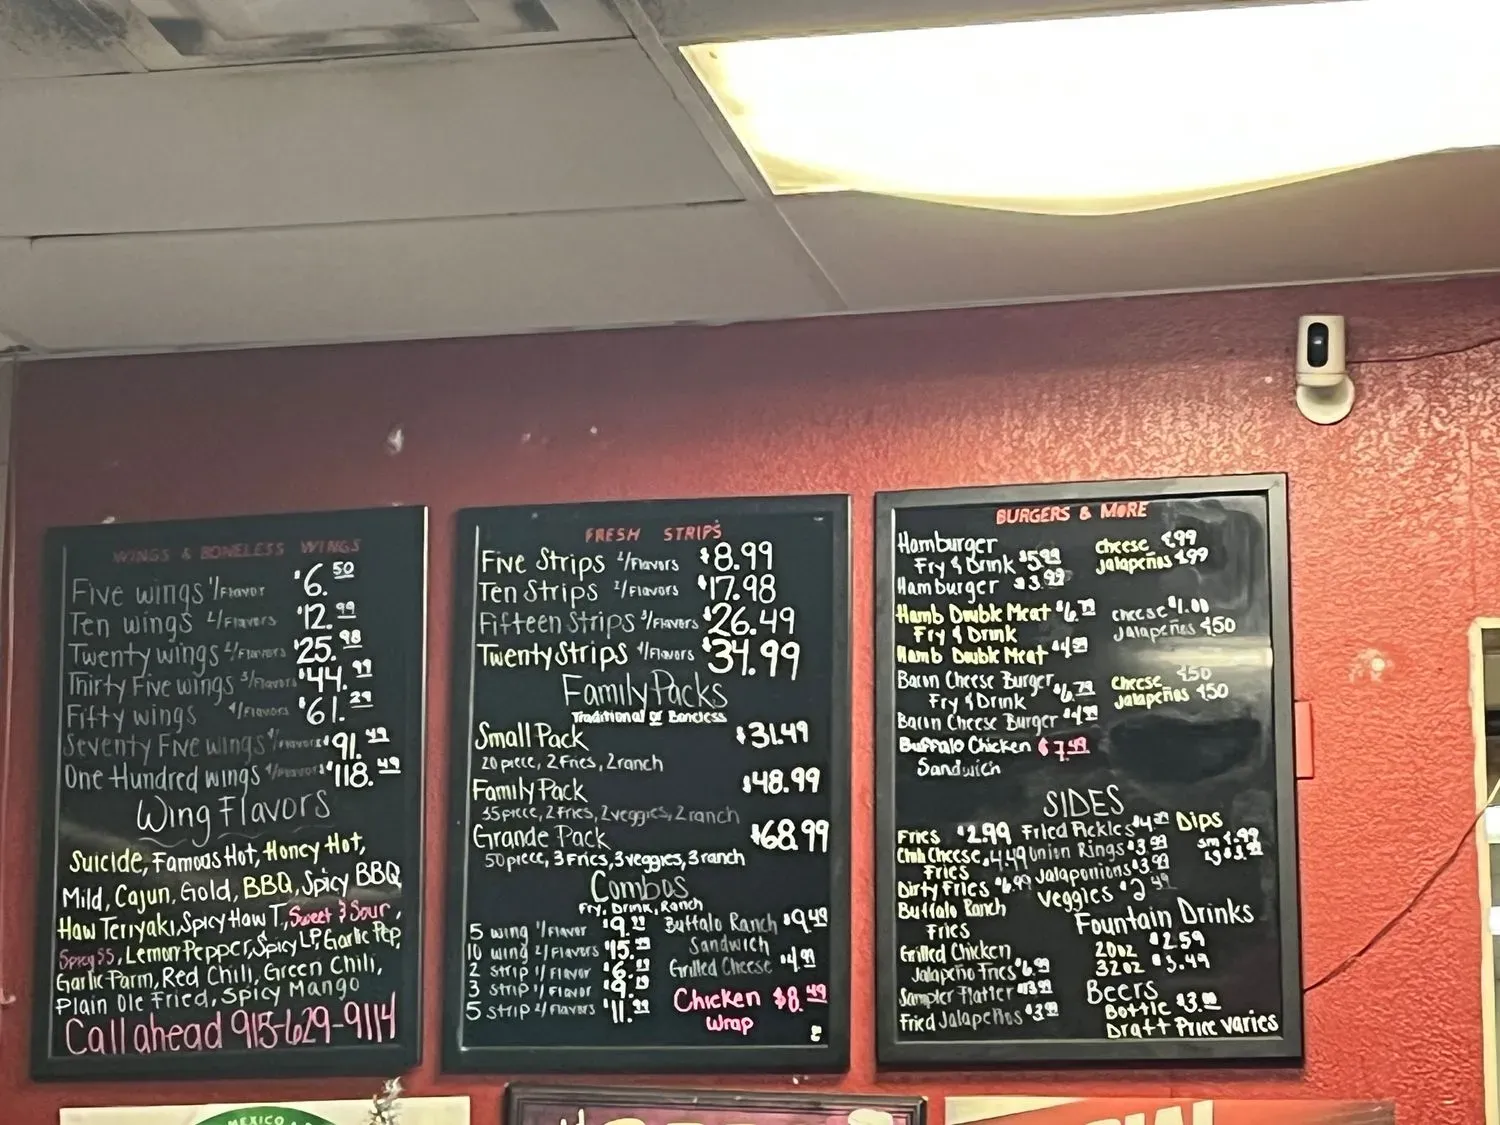 WINGS & BONELESS WINGS
Five wings 1/Flavor $6.50
Ten wings 2/Flavors $12.99
Twenty wings 2/Flavors $25.98
Thirty Five wings 3/Flavors $44.99
Fifty wings 4/Flavors $61.29
Seventy Five wings 4/Flavors $91.49
One Hundred wings 4/Flavors $118.49
Wing Flavors
Suicide, Famous Hot, Honey Hot,
Mild, Cajun, Gold, BBQ, Spicy BBQ
Haw Teriyaki, Spicy Haw T, Sweet & Sour,
Spicy SS, Lemon Pepper, Spicy LP, Garlic Pep,
Garlic Parm, Red Chili, Green Chili,
Plain Ole Fried, Spicy Mango
Call ahead 915-629-9114
FRESH STRIPS
Five Strips 2/Flavors $8.99
Ten Strips 2/Flavors $17.98
Fifteen Strips 3/Flavors $26.49
Twenty Strips 4/Flavors $34.99
Family Packs
Traditional or Boneless
Small Pack $31.49
20 piece, 2 Fries, 2 ranch
Family Pack $48.99
35 piece, 2 Fries, 2 veggies, 2 ranch
Grande Pack $68.99
50 piece, 3 Fries, 3 veggies, 3 ranch
Combos
Fry, Drink, Ranch
5 wing 1/Flavor $9.
10 wing 2/Flavors $15.
2 strip 1/Flavor $6.
3 strip 1/Flavor $9.
5 strip 2/Flavors $11.99
Buffalo Ranch $9.49
Sandwich
Grilled Cheese $4.99
Chicken $8.49
Wrap
BURGERS & MORE
Hamburger
Fry & Drink $5.99
Hamburger $3.99
cheese ¢99
jalapeños ¢99
Hamb Double Meat $6.79
Fry & Drink
Hamb Double Meat $4.99
cheese $1.00
jalapeños ¢50
Bacon Cheese Burger $6.79
Fry & Drink
Bacon Cheese Burger $4.99
cheese ¢50
jalapeños ¢50
Buffalo Chicken $7.99
Sandwich
SIDES
Fries $2.99
Chili Cheese 4.49
Fries
Dirty Fries $6.99
Buffalo Ranch
Fries
Grilled Chicken
Jalapeño Fries $6.99
Sampler Platter $13.99
Fried Jalapeños $3.99
Fried Pickles
Union Rings $3.99
Jalaponions $3.99
Veggies $2.49
Dips
sm ¢.99
lg
Fountain Drinks
20oz $2.59
32oz $3.49
Beers
Bottle $3.00
Draft Price varies
MEXICO